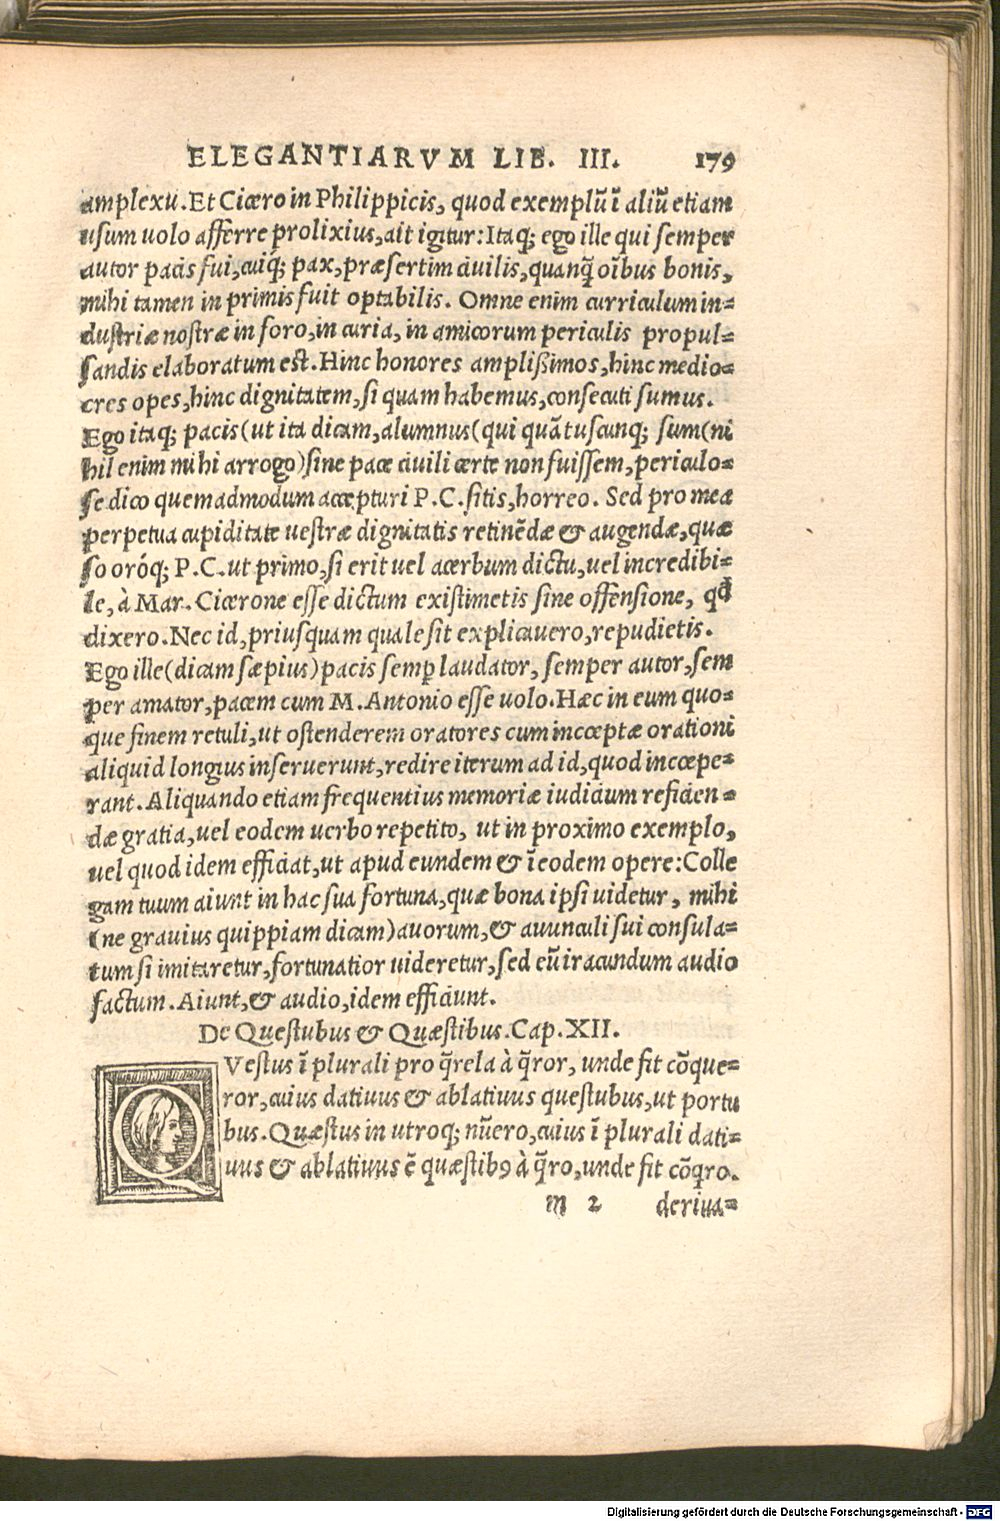 ELEGANTIARVM LIB. III. 179
amplexu. Et Cicero in Philippicis, quod exemplū ī aliū etiam
usum uolo afferre prolixius, ait igitur: Itaq; ego ille qui semper
autor pacis fui, cuiq; pax, præsertim ciuilis, quanq̄ oībus bonis,
mihi tamen in primis fuit optabilis. Omne enim curriculum in-
dustriæ nostræ in foro, in curia, in amicorum periculis propul-
sandis elaboratum est. Hinc honores amplißimos, hinc medio-
cres opes, hinc dignitatem, si quam habemus, consecuti sumus.
Ego itaq; pacis (ut ita dicam, alumnus (qui quātuscunq; sum (ni
hil enim mihi arrogo) sine pace ciuili certe non fuissem, periculo-
se dico quemadmodum accepturi P.C. sitis, horreo. Sed pro mea
perpetua cupiditate uestræ dignitatis retinēdæ & augendæ, quæ
so oróq; P.C. ut primo, si erit uel acerbum dictu, uel incredibi-
le, à Mar. Cicerone esse dictum existimetis sine offensione, qd
dixero. Nec id, priusquam quale sit explicauero, repudietis.
Ego ille (dicam sæpius) pacis semp̱ laudator, semper autor, sem
per amator, pacem cum M. Antonio esse uolo. Hæc in eum quo-
que finem retuli, ut ostenderem oratores cum incœptæ orationi
aliquid longius inseruerunt, redire iterum ad id, quod incœpe-
rant. Aliquando etiam frequentius memoriæ iudicium reficien-
dæ gratia, uel eodem uerbo repetito, ut in proximo exemplo,
uel quod idem efficiat, ut apud eundem & ī eodem opere: Colle
gam tuum aiunt in hac sua fortuna, quæ bona ipsi uidetur, mihi
(ne grauius quippiam dicam) auorum, & auunculi sui consula-
tum si imitaretur, fortunatior uideretur, sed eū iracundum audio
factum. Aiunt, & audio, idem efficiunt.
De Questubus & Quæstibus. Cap. XII.
QVestus ī plurali pro q̄rela à q̄ror, unde fit cōque-
ror, cuius datiuus & ablatiuus questubus, ut portu
bus. Quæstus in utroq; nūero, cuius ī plurali dati-
uus & ablatiuus ē quæstibꝰ à q̄ro, unde fit cōq̄ro.
m 2 deriua-
Digitalisierung gefördert durch die Deutsche Forschungsgemeinschaft - DFG